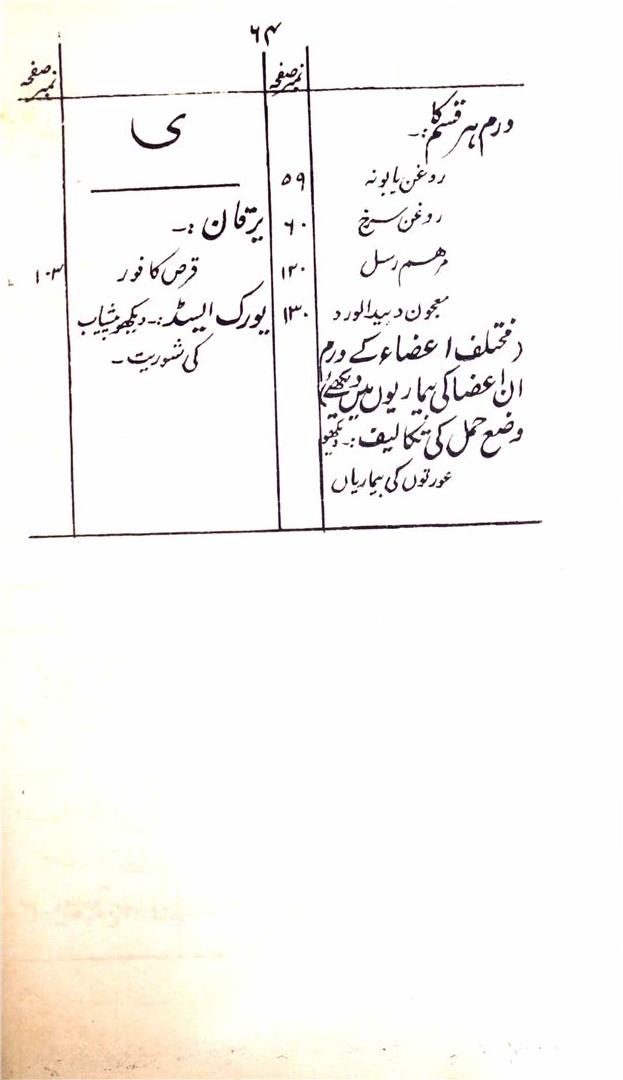 ۶۴
نمبر صفحہ
ورم ہر قسم کا:۔
روغن بابونہ ۵۹
روغن سرخ ۶۰
مرہم رسل ۱۲۰
معجون دبیدالورد ۱۳۰
(مختلف اعضاء کے ورم
ان اعضا کی بیماریوں میں دیکھئے)
وضع حمل کی تکالیف:۔ دیکھو
عورتوں کی بیماریاں
نمبر صفحہ
ی
یرقان:۔
قرص کافور ۱۰۳
یورک ایسڈ:۔ دیکھو پیشاب
کی شوریت۔